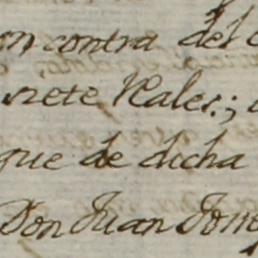 on contra del
siete Reales; 
que de dicha
Don Juan Jose